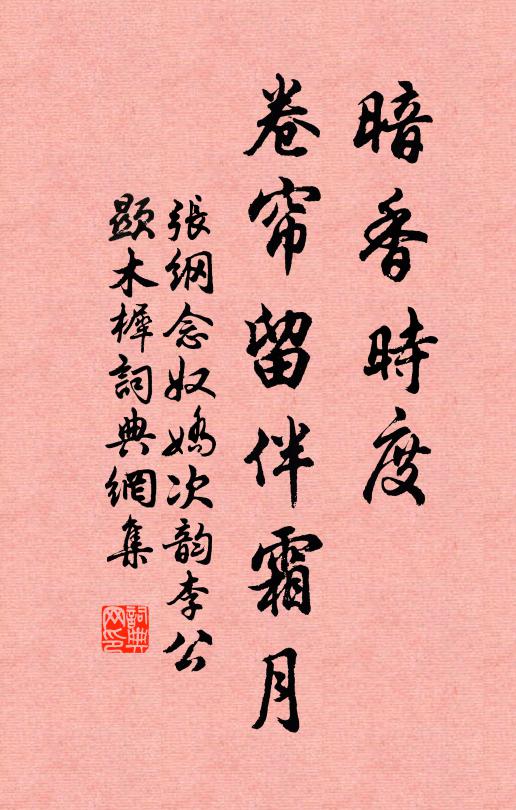 暗香時度
卷帘留伴霜月
張綱念奴嬌次韵李公
顯木樨詞典網集
詞典网印